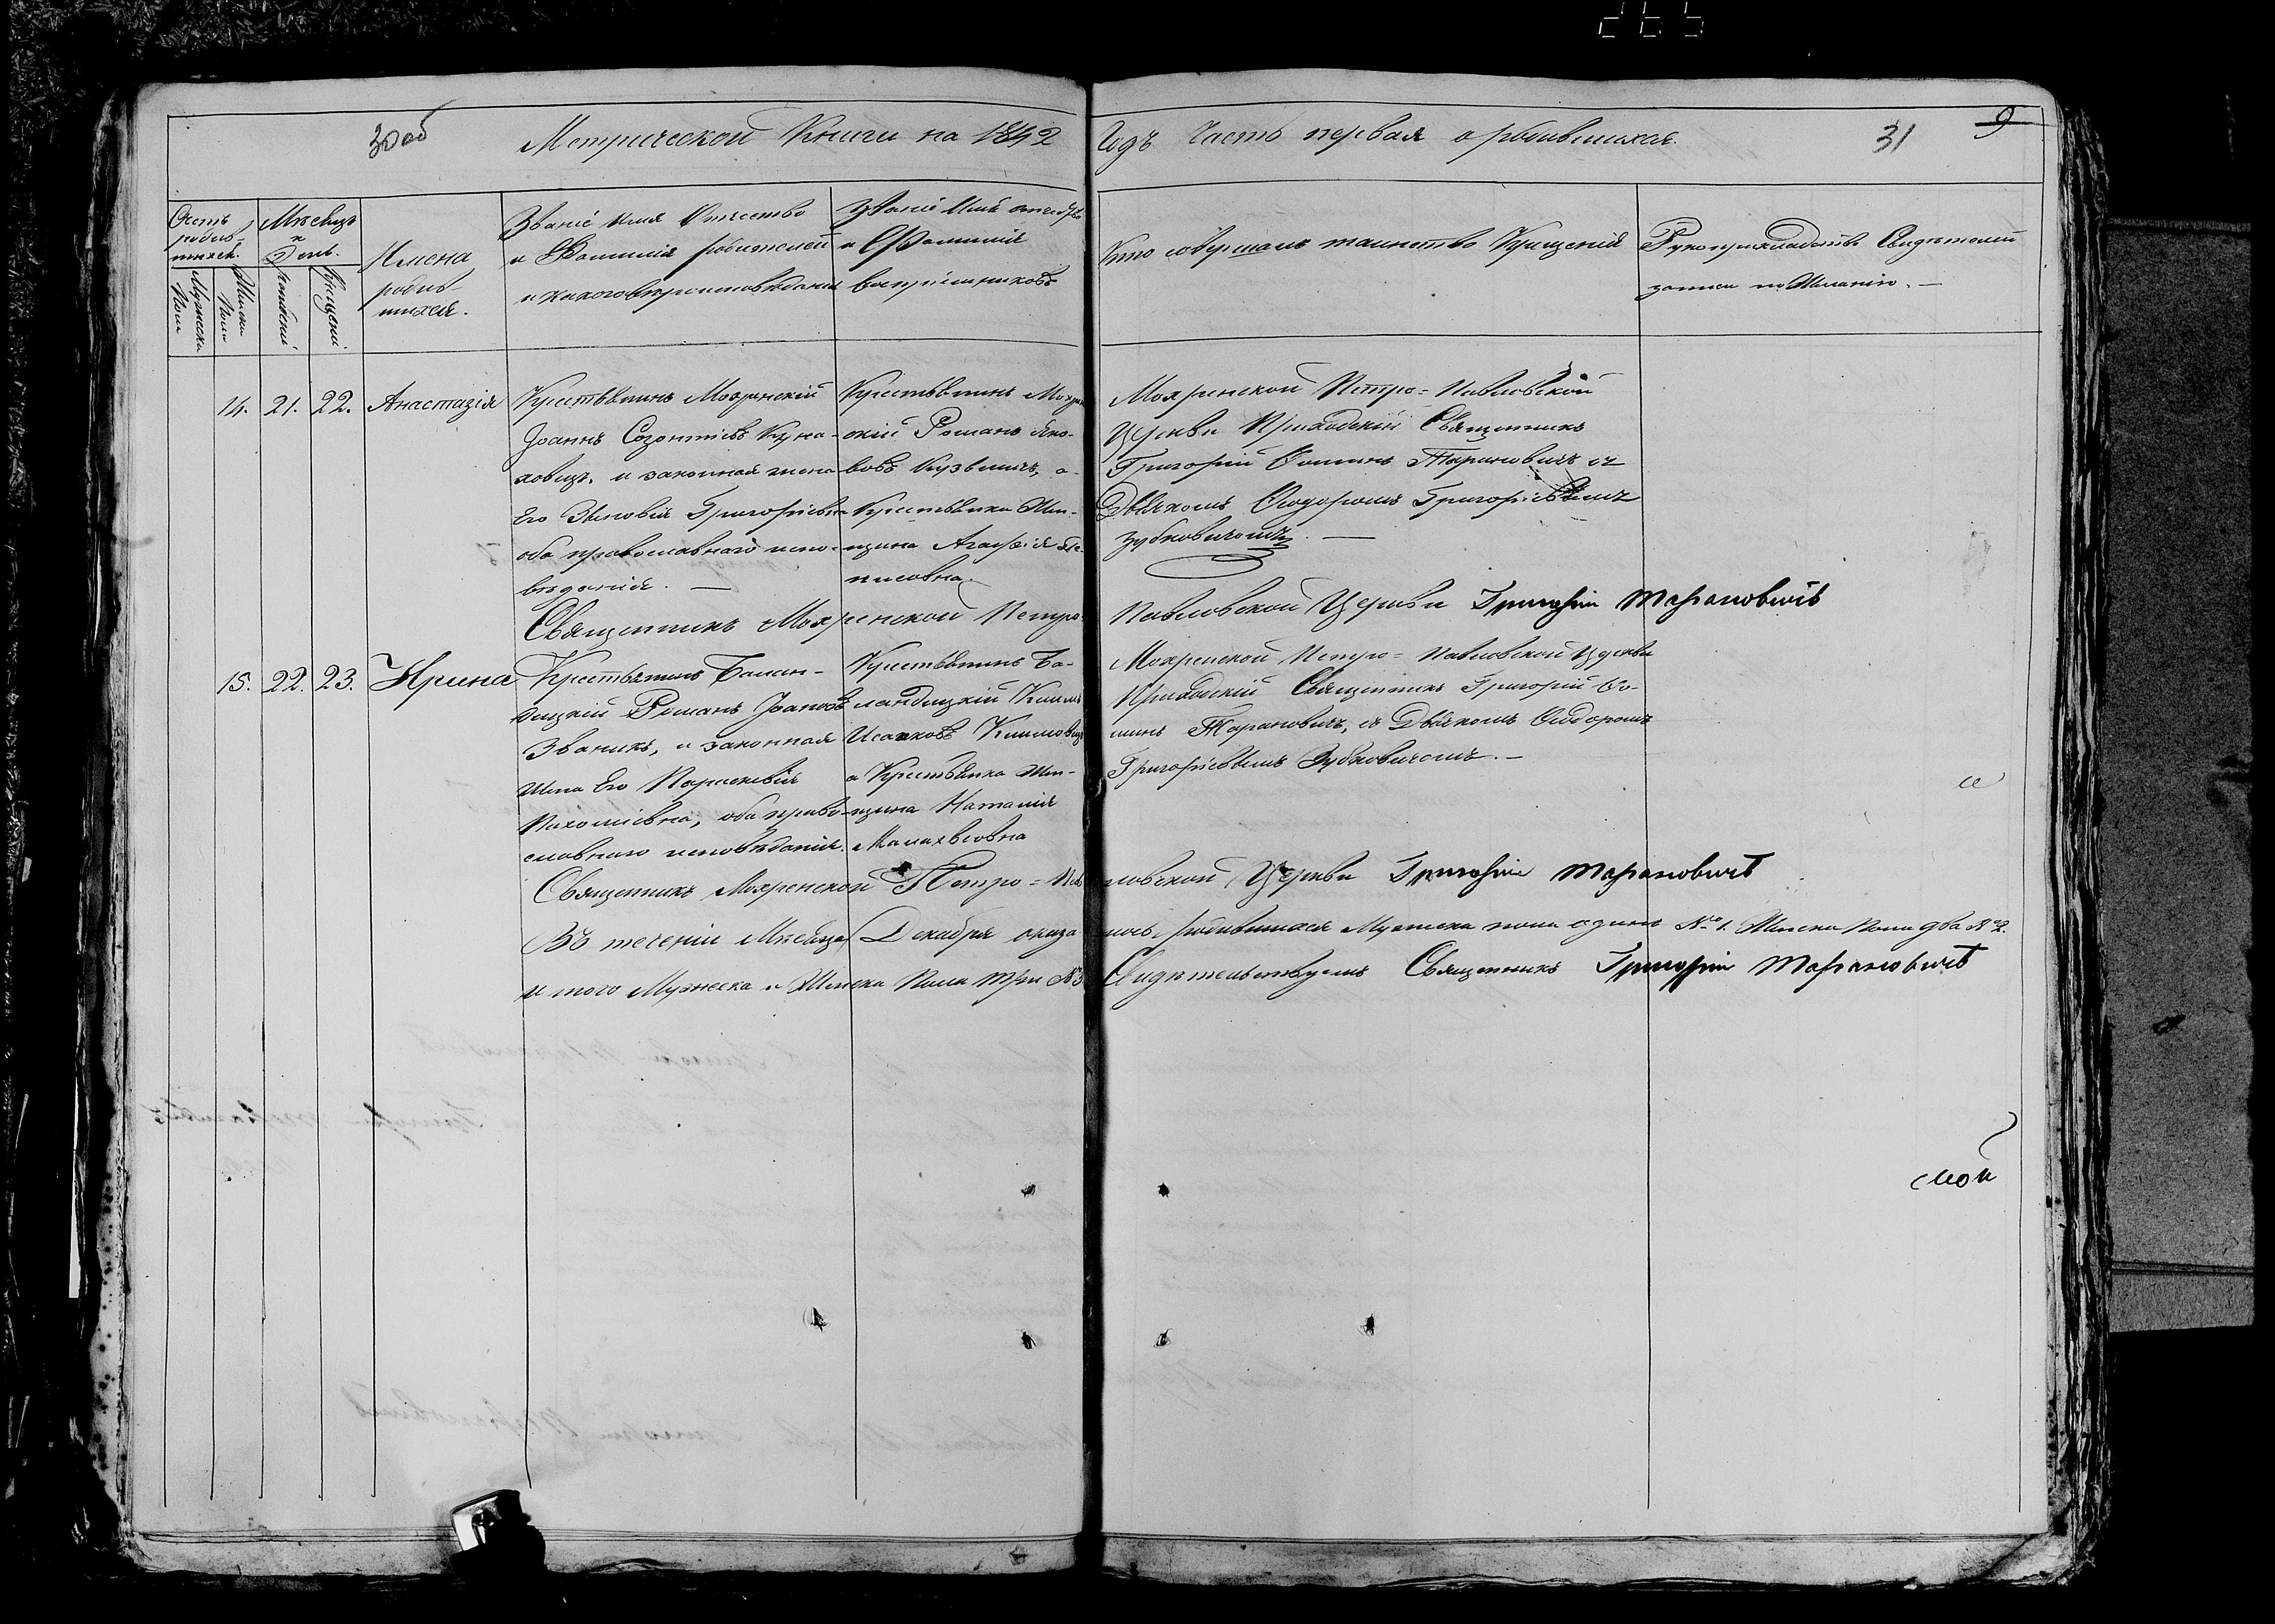 30 об
Метрической Книги на 1842
Годъ Часть первая о родившихся.
31
9
Счетъ родив-шихся.
Мужеска Пола
Женска Пола
Мѣсяцъ и День.
Рожденія
Крещенія
Имена
родив-
шихся.
Званіе Имя Отчество
и Фамилія родителей
и какого вѣроисповѣданія
Званіе Имя отчество
и Фамилія
воспріемниковъ
Кто совершалъ таинство Крещенія
Рукоприкладство Свидѣтелей
записи по Желанію. —
14. 21. 22. Анастазія
Крестьянинъ Мохренскій
Іоаннъ Созонтіевъ
ховичъ, и законная жена
Его Зѣновія Григоріевна
оба православнаго испо-
вѣданія. —
Крестьянинъ
скій Романъ Яко-
вовъ Кузьмичъ, а
Крестьянка Жен-
щина Агафія
нисовна.
Мохренской Петро=Павловской
Церкви Приходскій Священникъ
Григорій Фоминъ Тарановичъ съ
Дьячкомъ Ѳеодоромъ Григорьевымъ
Зубковичомъ. —
Священникъ Мохренской Петро-
Павловской Церкви Григорій Тарановичъ
15. 22. 23. Ирина
Крестьянинъ Балан-
дицкій Романъ Іоановъ
Званикъ, и законная
жена Его Параскевія
Пахоміевна, оба право-
славнаго исповѣданія.
Крестьянинъ Ба-
ландицкій Климъ
Исааковъ Климовичъ
а Крестьянка Жен-
щина Наталія
Малахвеовна
Мохренской Петро=Павловской Церкви
Приходскій Священникъ Григорій Фо-
минъ Тарановичъ, съ Дьячкомъ Ѳеодоромъ
Григорьевымъ Зубковичомъ. —
Священникъ Мохренской Петро=Пав
ловской Церкви Григорій Тарановичъ
Въ теченіи Мѣсяца Декабря оказа
лось родившихся Мужеска пола одинъ № 1. Женска Пола два № 2.
И того Мужеска и Женска Пола три № 3
Свидѣтельствуемъ Священникъ Григорій Тарановичъ